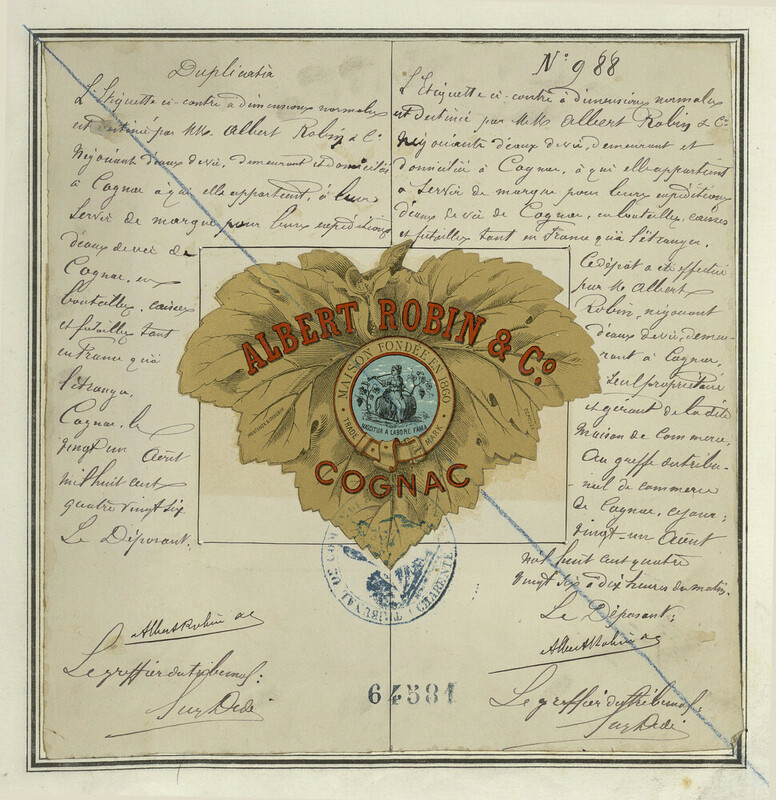 Duplicata
L'Etiquette ci-contre à dimensions normales
est destiné par MM. Albert Robin & Cie
Négociant d'eaux de vie, demeurant et domicilié
à Cognac à qui elle appartient, à leur
servir de marque pour leurs expéditions
d'eaux de vie de
Cognac, en
bouteilles, caisses
et futailles tant
en France qu'à
l'étranger.
Cognac, le
vingt un Août
mil huit cent
quatre vingt six
Le Déposant:
Albert Robin
Le greffier du tribunal:
No 988
L'Etiquette ci-contre à dimensions normales
est destiné par MM Albert Robin & Cie
Négociants d'eaux de vie, demeurant et
domicilié à Cognac, à qui elle appartient
à servir de marque pour leurs expéditions
d'eaux de vie de Cognac, en bouteilles, caisses
et futailles tant en France qu'à l'étranger.
Ce dépôt a été effectué
par M. Albert
Robin, négociant
d'eaux de vie, demeu-
rant à Cognac,
seul propriétaire
et gérant de la dite
maison de commerce,
Au greffe du tribu-
nal de commerce
de Cognac, ce jour;
vingt-un Août
mil huit cent quatre
vingt six à dix heures du matin.
Le Déposant:
Albert Robin
Le greffier du tribunal:
ALBERT ROBIN & Co.
MAISON FONDÉE EN 1860
NASCITUR A LABORE FAMA
TRADE MARK
COGNAC
TRIBUNAL DE COM
CHARENTE
64581